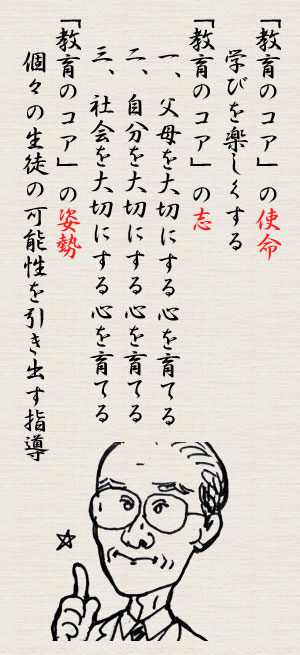 「教育のコア」の使命
学びを楽しくする
「教育のコア」の志
一、父母を大切にする心を育てる
二、自分を大切にする心を育てる
三、社会を大切にする心を育てる
「教育のコア」の姿勢
個々の生徒の可能性を引き出す指導